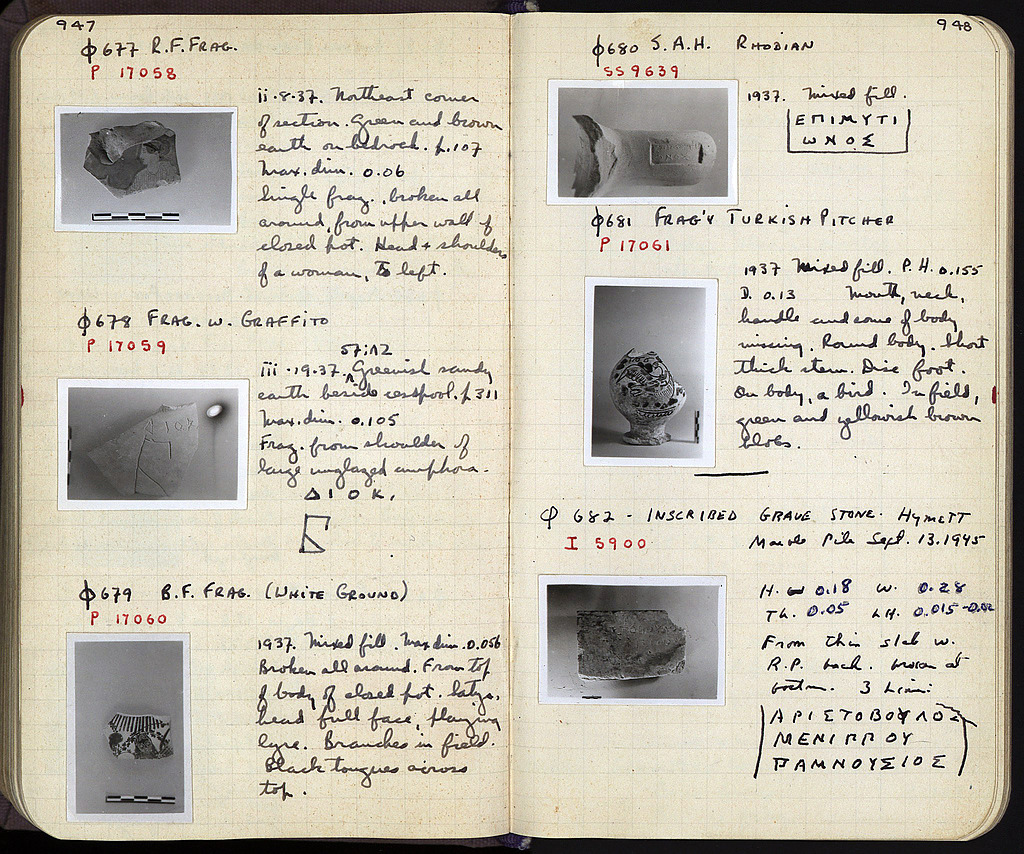 947
Φ677 R.F. FRAG.
P 17058
ii-8-37. Northeast corner
of section. Green and brown
earth on bedrock. p.107
Max. dim. 0.06
Single frag., broken all
around, from upper wall of
closed pot. Head + shoulders
of a woman, to left.
Φ678 FRAG. W. GRAFFITO
P 17059
57:12
iii-19-37. Greenish sandy
earth beside cesspool. p.311
Max. dim. 0.105
Frag. from shoulder of
large unglazed amphora.
Δ Ι Ο Κ.
Φ679 B.F. FRAG. (WHITE GROUND)
P 17060
1937. Mixed fill. Max dim. 0.056
Broken all around. From top
of body of closed pot. Satyr,
head full face, playing
lyre. Branches in field.
Black tongues across
top.
948
Φ680 S.A.H. RHODIAN
SS 9639
1937. Mixed fill.
ΕΠΙΜΥΤΙ
ΩΝΟΣ
Φ681 FRAG'Y TURKISH PITCHER
P 17061
1937 Mixed fill. P.H. 0.155
D. 0.13 Mouth, neck,
handle and some of body
missing. Round body. Short
thick stem. Disc foot.
On body, a bird. In field,
green and yellowish brown
blobs.
Φ 682 - INSCRIBED GRAVE STONE. HYMETT
I 5900
Marble Pile Sept. 13. 1945
H. 0.18 W. 0.28
TH. 0.05 LH. 0.015-0.02
From thin slab w.
R.P. back. broken at
bottom. 3 Lines:
ΑΡΙΣΤΟΒΟΥΛΟΣ
ΜΕΝΙΠΠΟΥ
ΠΑΜΝΟΥΣΙΟΣ